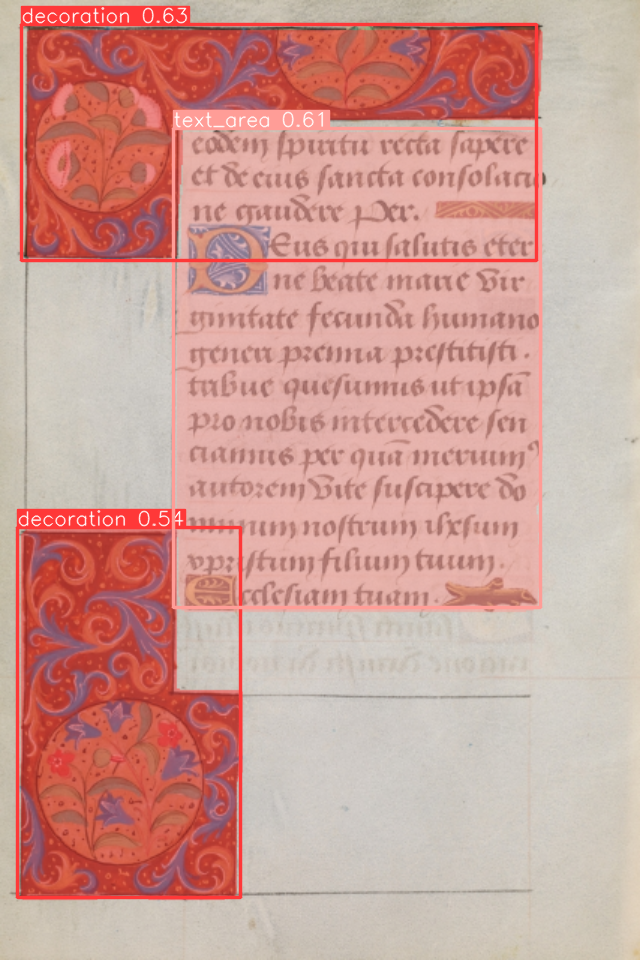 decoration 0.63
text_area 0.61
eodem spiritu recta sapere
et de eius sancta consolacio
ne gaudere Per.
Deus qui salutis eter
ne beate marie vir
ginitate fecunda humano
generi premia prestitisti.
tribue quesumus ut ipsā
pro nobis intercedere sen
ciamus per quā meruimꝰ
autorem vite suscipere do
decoration 0.54
minum nostrum ihxsum
xpristum filium tuum.
Ecclesiam tuam.